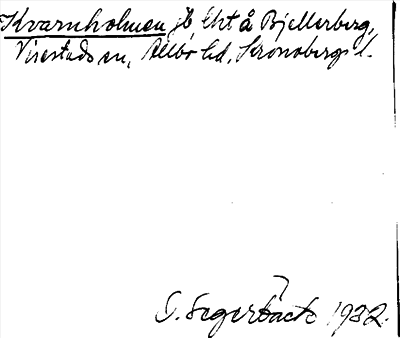 Kvarnholmen jb lht å Bjellerberg,
Virestads sn, Allbo hd, Kronobergs l.
S. Segerbäck 1932.